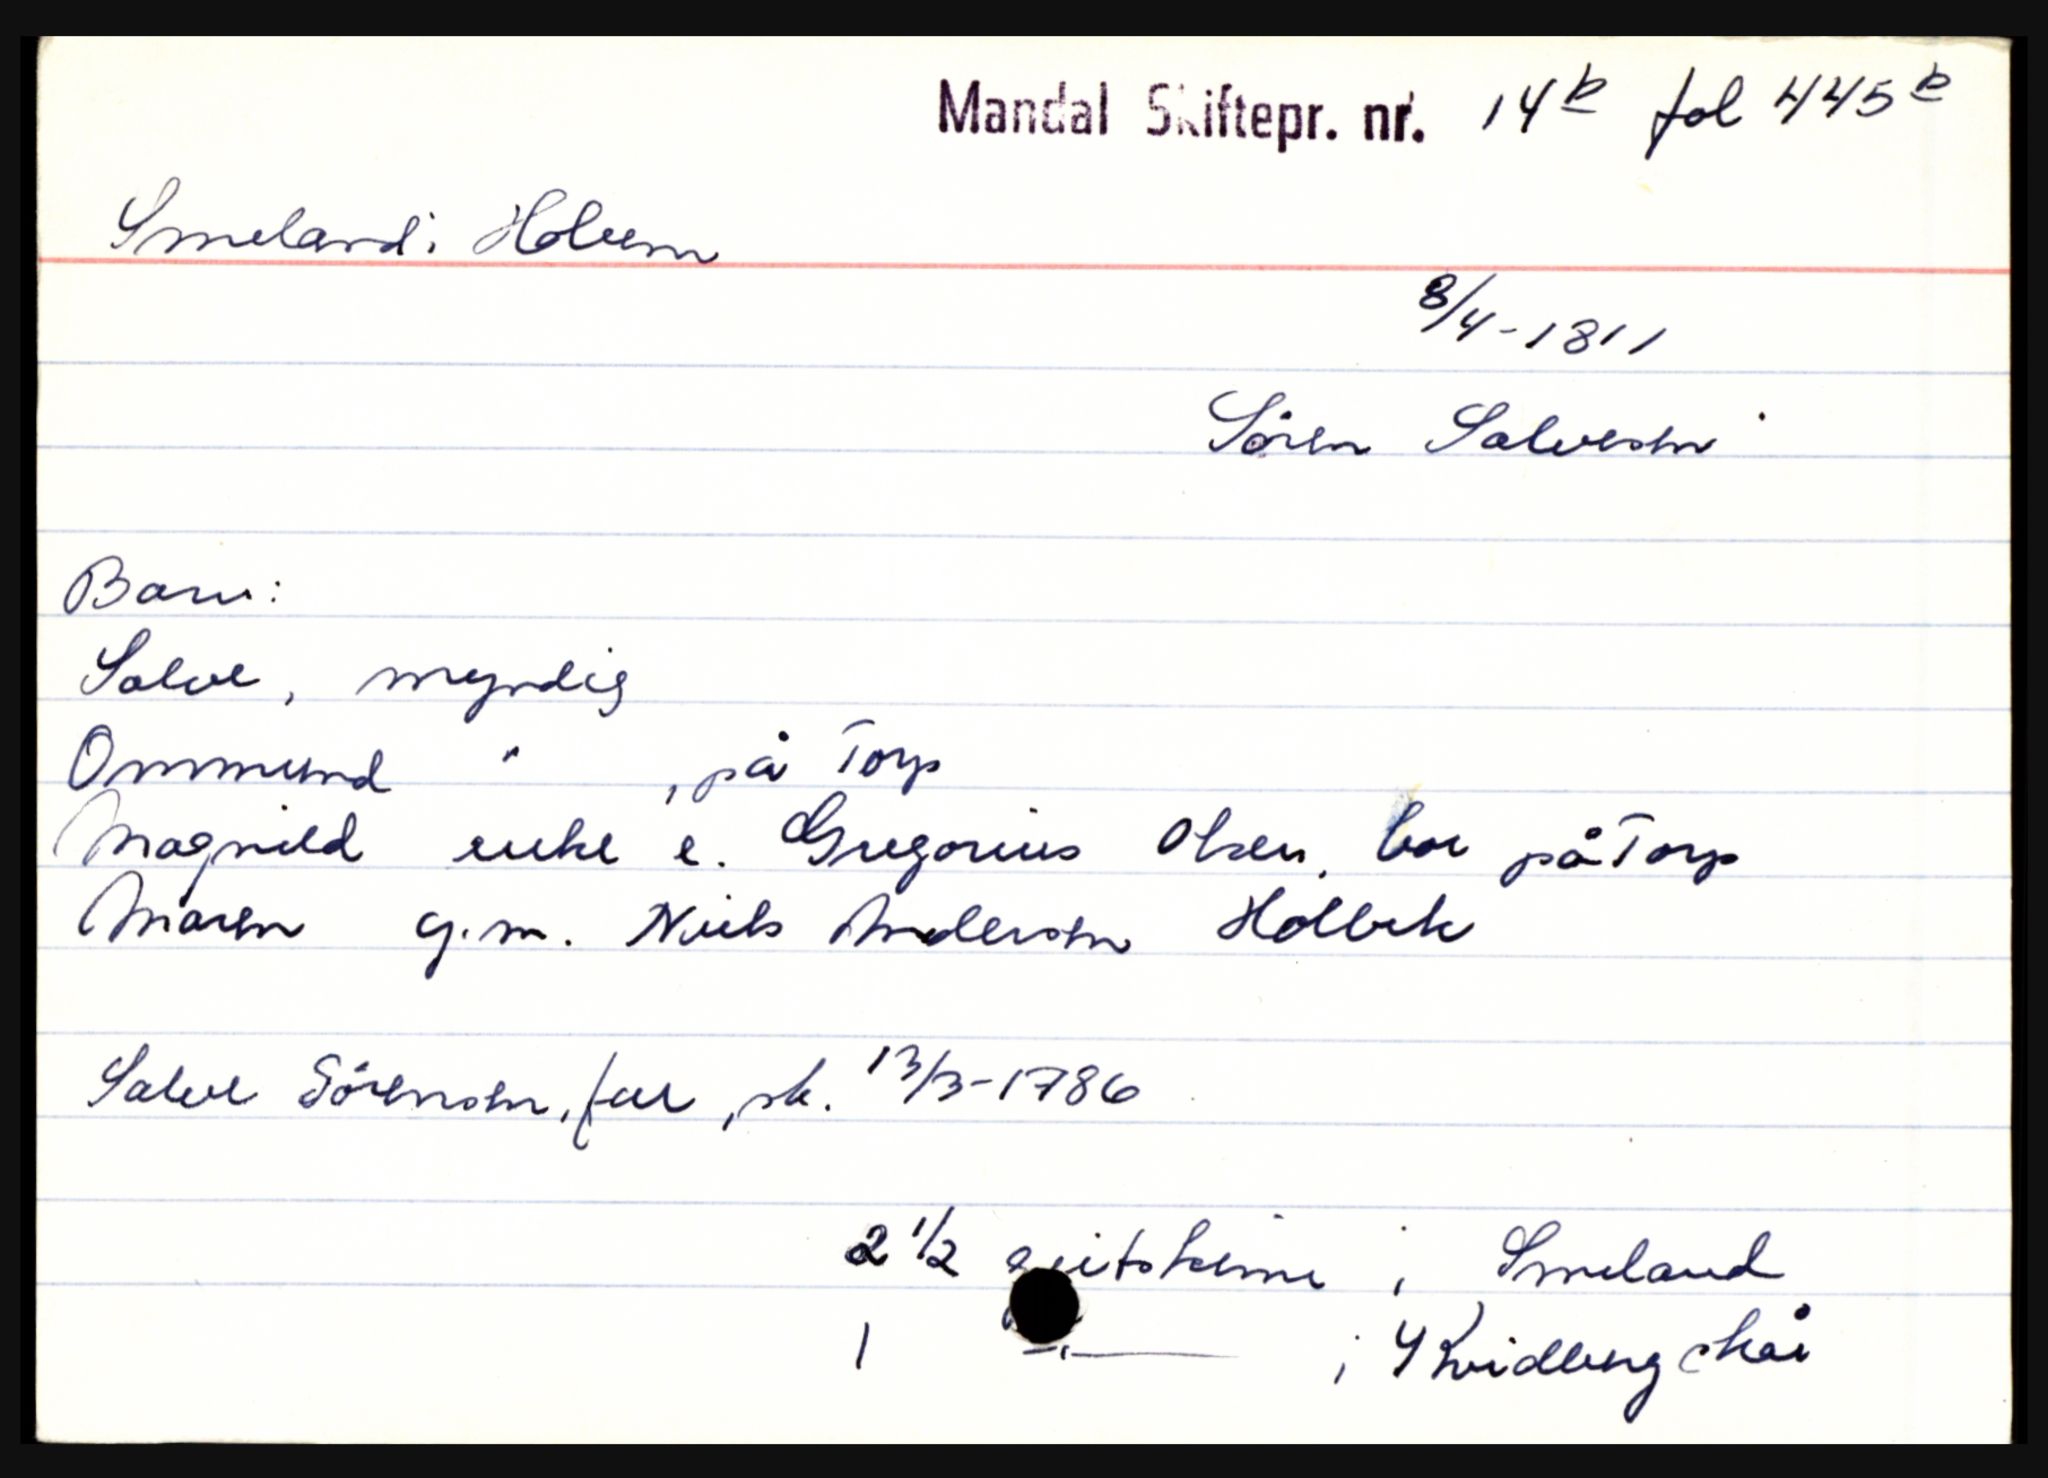 Mandal Skiftepr. nr. 14b fol 445b
Smeland i Holum
8/4-1811
Sören Salvesen
Barn:
Salve, myndig
Ommund " , på Torp
Magnild enke e. Gregorius Olsen, bor på Torp
Maren g.m. Niels Andersen Holbek
Salve Sörensen, far, sk. 13/3-1786
2 1/2 geitskinn i Smeland
1 —"— i Kvidberg